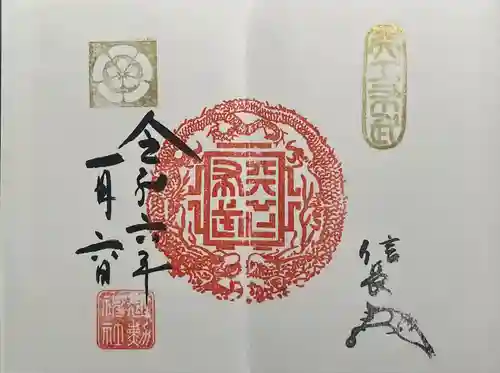 天下布武
信長
天下布武
令和六年
一月六日
建勲神社